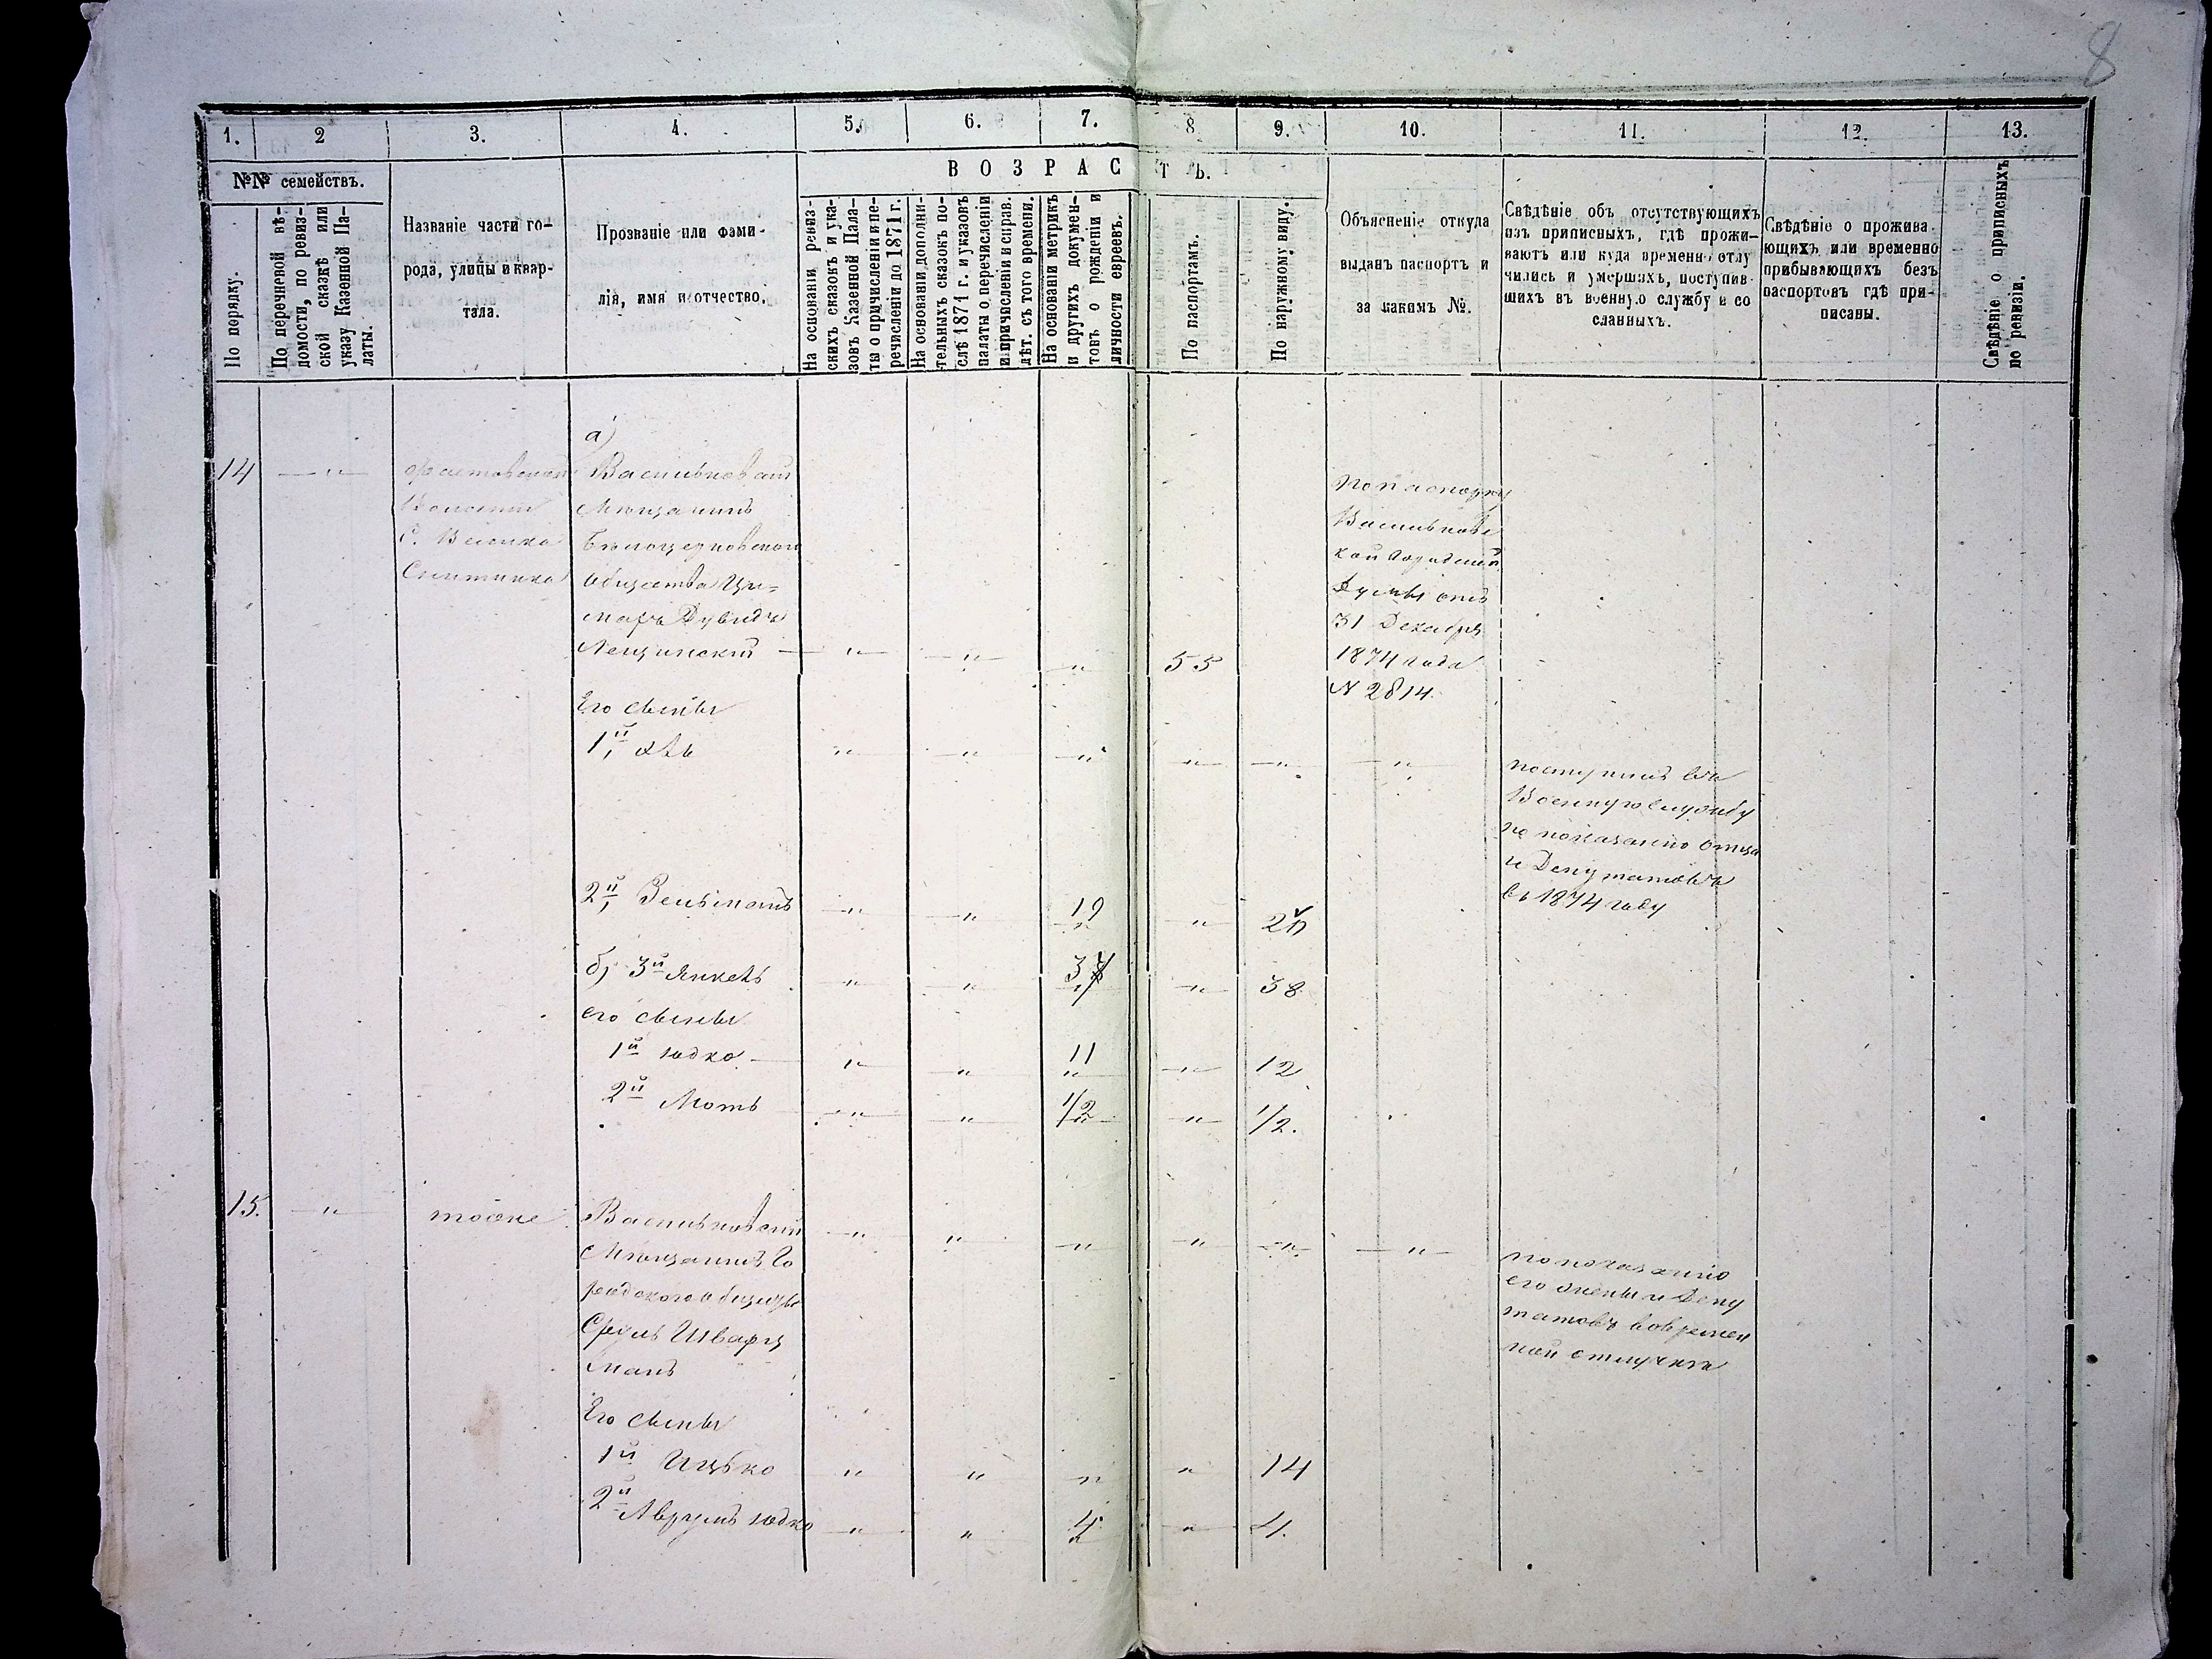 8
1. 2 3. 4. 5. 6. 7. 8. 9. 10. 11. 12. 13.
№№ семействъ.
По порядку.
По перечневой вѣ-
домости, по ревиз-
ской сказкѣ или
указу Казенной Па-
латы.
Названіе части го-
рода, улицы и квар-
тала.
Прозваніе или фами-
лія, имя и отчество.
ВОЗРАСТЪ.
На основаніи ревиз-
скихъ сказокъ и ука-
зовъ Казенной Пала-
ты о причисленіи и пе-
речисленіи до 1871 г.
На основаніи дополни-
тельныхъ сказокъ по-
слѣ 1871 г. и указовъ
палаты о перечисленіи
и причисленіи и справ.
лѣт. съ того времени.
На основаніи метрикъ
и другихъ докумен-
товъ о рожденіи и
личности евреевъ.
По паспортамъ.
По наружному виду.
Объясненіе откуда
выданъ паспортъ и
за какимъ №.
Свѣдѣніе объ отсутствующихъ
изъ приписныхъ, гдѣ прожи-
ваютъ или куда временно отлу
чились и умершихъ, поступив-
шихъ въ военную службу и со
сланныхъ.
Свѣдѣніе о прожива-
ющихъ или временно
прибывающихъ безъ
паспортовъ гдѣ при-
писаны.
Свѣдѣніе о приписныхъ
по ревизіи.
14 — "
Фастовская
Волости
с. Велика
Снитинка
а)
Васильковскій
Мѣщанинъ
Бѣлоцерковского
Общества
Дувидъ
Лещинскій — " " " 55
По паспорту
Васильковс
кой Городской
Думы отъ
31 Декабря
1874 года
N 2814.
Его сыны
1й " " " " " "
поступилъ въ
Военную службу
по показанію отца
и Депутатовъ
въ 1874 году
2й " " 19 "
б) 3й Янкель " " " 38
его сыны
1й Юдко — " " 11 " 12
2й Моть " " 1/2 " 1/2.
15. " тоже
Васильковскій " " " " " "
Мѣщанинъ Го
родского общества
Сруль Шварц
манъ
по показанію
его жены и Депу
татовъ во времен
ной отлучкѣ
Его сыны
1й Ицько " " " " 14
2й Аврумъ Юдко " " 4 " 4.